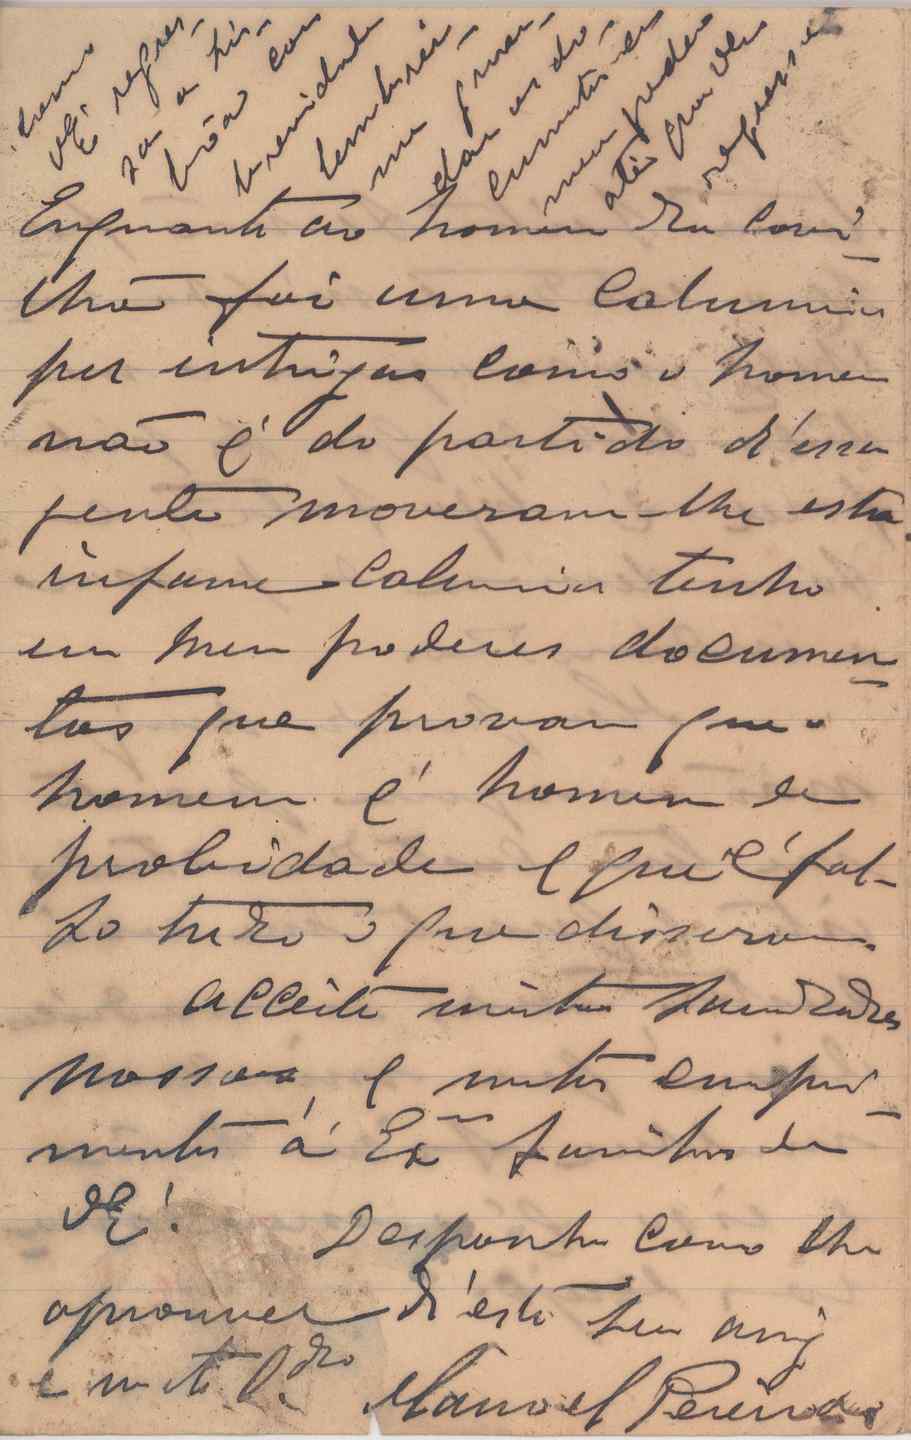 como
VExª regres-
sa a Lis-
bôa com
brevidade
lembrei-
me guar-
dar os do-
cumentos em
meu poder
até que VExª
regresse
Enquanto ao homem da Covi-
lhã foi uma calumnia
por intrigas como o homem
não é do partido d'essa
gente moveram-lhe esta
infame calumnia tenho
em meu poderes documen-
tos que provam que o
homem é homem de
probidade e que é fal-
so tudo o que disseram.
Acceite muitas saudades
nossas e muitos cumpri-
mentos á Exmª familia de
VExª.
Desponha como lhe
aprouver d'este seu amigo
e muito Obrdo
Manoel Pereira